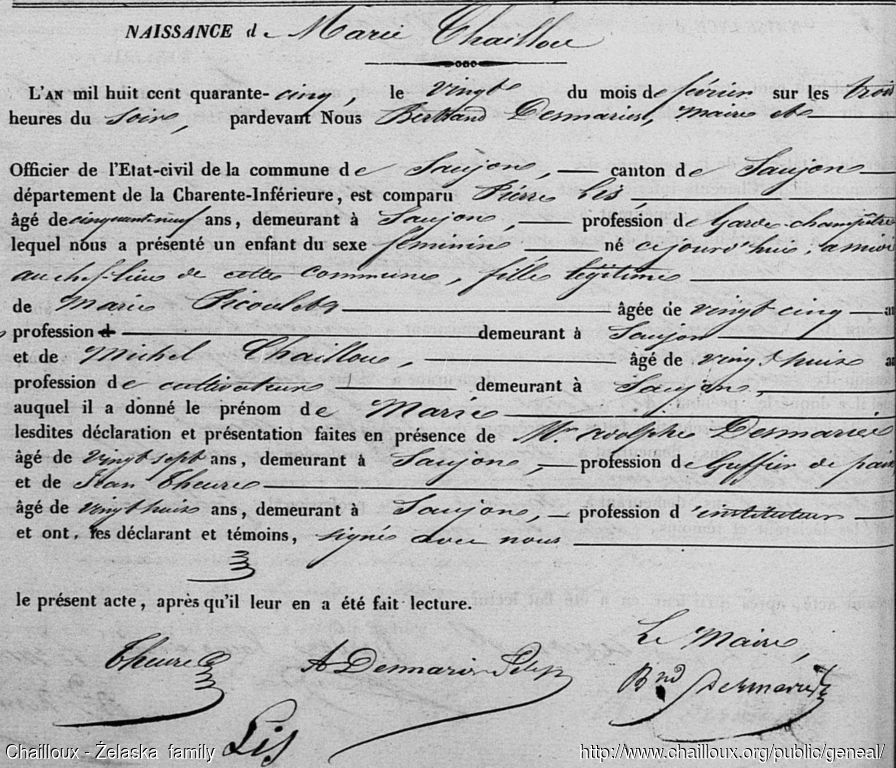 NAISSANCE de Marie Chaillou
L'AN mil huit cent quarante-cinq, le vingt du mois de février sur les trois
heures du soir, pardevant Nous Bertrand Desmaries, maire et
Officier de l'Etat-civil de la commune de Saujon, canton de Saujon
département de la Charente-Inférieure, est comparu Pierre Lis,
âgé de cinquante neuf ans, demeurant à Saujon, profession de Garde champêtre
lequel nous a présenté un enfant du sexe féminin né ce jourd'hui, a
au chef-lieu de cette commune, fille légitime
de Marie Picoulet âgée de vingt cinq a
profession demeurant à Saujon
et de Michel Chaillou, âgé de vingt huit a
profession de cultivateur demeurant à Saujon,
auquel il a donné le prénom de Marie
lesdites déclaration et présentation faites en présence de Mr Adolphe Desmaries
âgé de vingt sept ans, demeurant à Saujon, profession de Greffier de paix
et de Jean Theure
âgé de vingt huit ans, demeurant à Saujon, profession d'instituteur
et ont, les déclarant et témoins, signé avec nous
le présent acte, après qu'il leur en a été fait lecture.
Le Maire,
Theure A Desmaries Bnd Desmaries
Lis
Chailloux - Żelaska family http://www.chailloux.org/public/geneal/